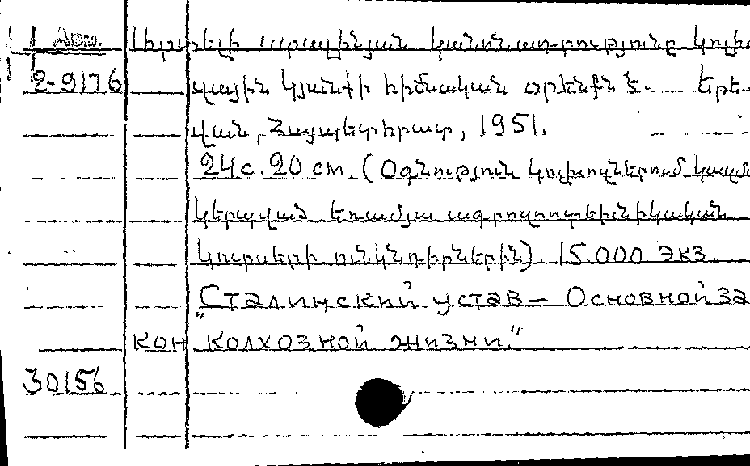 2-9176
կանոնադրությունը կոլխ
պային կյանքի հիմնական օրենքն է. Երե-
վան, Հայպետհրատ, 1951.
24 с. 20 cm. (Օգնություն կոլխոզներում կազմ
կերպված եռամյա ագրոզոոտեխնիկական
կուրսերի ունկնդիրներին). 15.000 экз
„Сталинский устав – Основной за
кон колхозной жизни."
30156